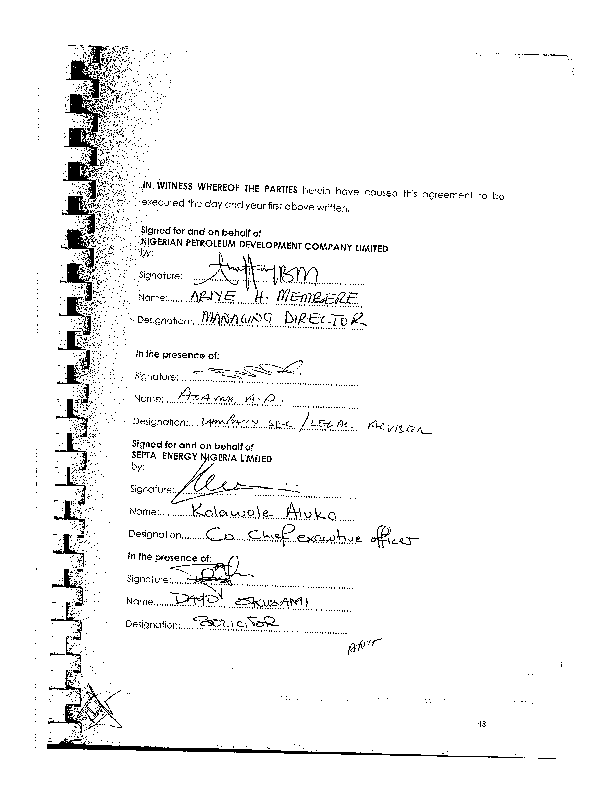 IN WITNESS WHEREOF THE PARTIES herein have caused this agreement to be
executed the day and year first above written.
Signed for and on behalf of
NIGERIAN PETROLEUM DEVELOPMENT COMPANY LIMITED
by:
Signature:
Name: ABIYE H. MEMBERE
Designation: MANAGING DIRECTOR
In the presence of:
Signature:
Name:
Designation: COMPANY SEC / LEGAL ADVISER
Signed for and on behalf of
SEPTA ENERGY NIGERIA LIMITED
by:
Signature:
Name: Kolawole Aluko
Designation: Co Chief executive officer
In the presence of:
Signature:
Name:
Designation: SOLICITOR
48